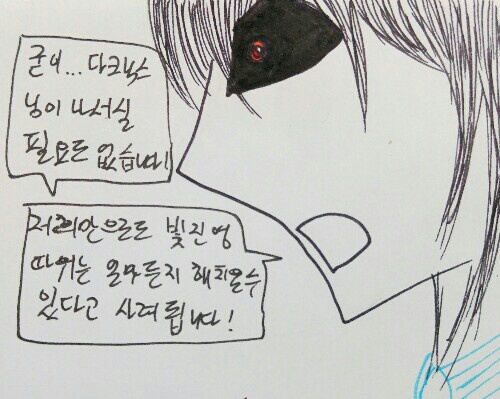 굳이... 다크닉스
님이 나서실
필요도 없습니다!
저희만으로도 빛진영
따위는 얼마든지 해치울수
있다고 사려됩니다!